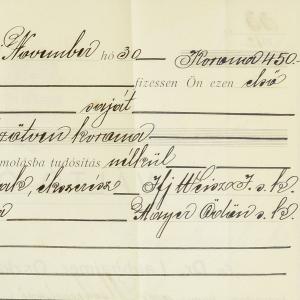 November hó 30 Korona 450-
fizessen Ön ezen első
saját
ötven korona
molásba tudósitás nélkül
ak, ékszerész Ifj Weisz I. s.k.
a Mayer Ödön s.k.